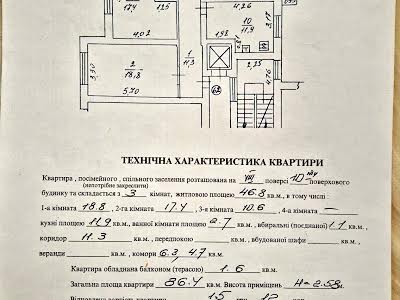 17,4
4.02
4.26
10
11,9
3.17
1.98
2
18,8
5.70
3.30
1
11,3
2,25
4.76
ТЕХНІЧНА ХАРАКТЕРИСТИКА КВАРТИРИ
Квартира , посімейного , спільного заселення розташована на VIII поверсі 10 поверхового
(непотрібне закреслити)
будинку та складається з 3 кімнат, житловою площею 46.8 кв.м , в тому числі :
1-а кімната 18.8 кв.м , 2-га кімната 17.4 кв.м , 3-я кімната 10.6 , 4-а кімната
кухні площею 11,9 кв.м , ванної кімнати площею 2.7 кв.м , вбиральні (поєднаної) 1.1 кв.м ,
коридор 11.3 кв.м , передпокою кв.м , вбудованої шафи кв.м ,
веранди кв.м , комори 6.3, 4.7 кв.м .
Квартира обладнана балконом (терасою) 1.6 кв.м .
Загальна площа квартири 86.4 кв.м Висота приміщень H=2.58